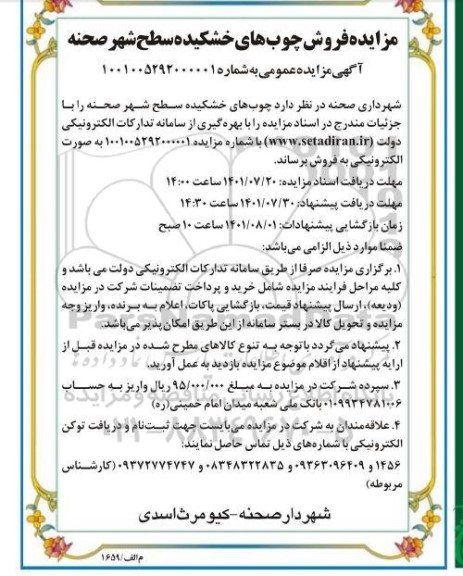 مزایده فروش چوب‌های خشکیده سطح شهر صحنه
آگهی مزایده عمومی به شماره ۱۰۰۱۰۰۵۲۹۲۰۰۰۰۰۱
شهرداری صحنه در نظر دارد چوب‌های خشکیده سطح شهر صحنه را با
جزئیات مندرج در اسناد مزایده را با بهره‌گیری از سامانه تدارکات الکترونیکی
دولت (www.setadiran.ir) با شماره مزایده ۱۰۰۱۰۰۵۲۹۲۰۰۰۰۰۱ به صورت
الکترونیکی به فروش برساند.
مهلت دریافت اسناد مزایده: ۱۴۰۱/۰۷/۲۰ ساعت ۱۴:۰۰
مهلت دریافت پیشنهاد: ۱۴۰۱/۰۷/۳۰ ساعت ۱۴:۳۰
زمان بازگشایی پیشنهادات: ۱۴۰۱/۰۸/۰۱ ساعت ۱۰ صبح
ضمنا موارد ذیل الزامی می‌باشد:
۱. برگزاری مزایده صرفا از طریق سامانه تدارکات الکترونیکی دولت می باشد و
کلیه مراحل فرایند مزایده شامل خرید و پرداخت تضمینات شرکت در مزایده
(ودیعه)، ارسال پیشنهاد قیمت، بازگشایی پاکات، اعلام به برنده، واریز وجه
مزایده و تحویل کالا در بستر سامانه از این طریق امکان پذیر می‌باشد.
۲. پیشنهاد می‌گردد با توجه به تنوع کالاهای مطرح شده در مزایده قبل از
ارایه پیشنهاد از اقلام موضوع مزایده بازدید به عمل آورید.
۳. سپرده شرکت در مزایده به مبلغ ۹۵/۰۰۰/۰۰۰ ریال واریز به حساب
۰۱۰۹۹۳۴۷۸۱۰۰۶ بانک ملی شعبه میدان امام خمینی(ره)
۴. علاقه‌مندان به شرکت در مزایده می‌بایست جهت ثبت‌نام و دریافت توکن
الکترونیکی با شماره‌های ذیل تماس حاصل نمایند:
۱۴۵۶ و ۰۹۳۶۳۰۹۶۴۰۹ و ۰۸۳۴۸۳۲۲۸۳۵ و ۰۹۳۷۲۷۷۴۷۴۷ (کارشناس
مربوطه)
شهردار صحنه-کیومرث اسدی
م‌الف/۱۶۵۹